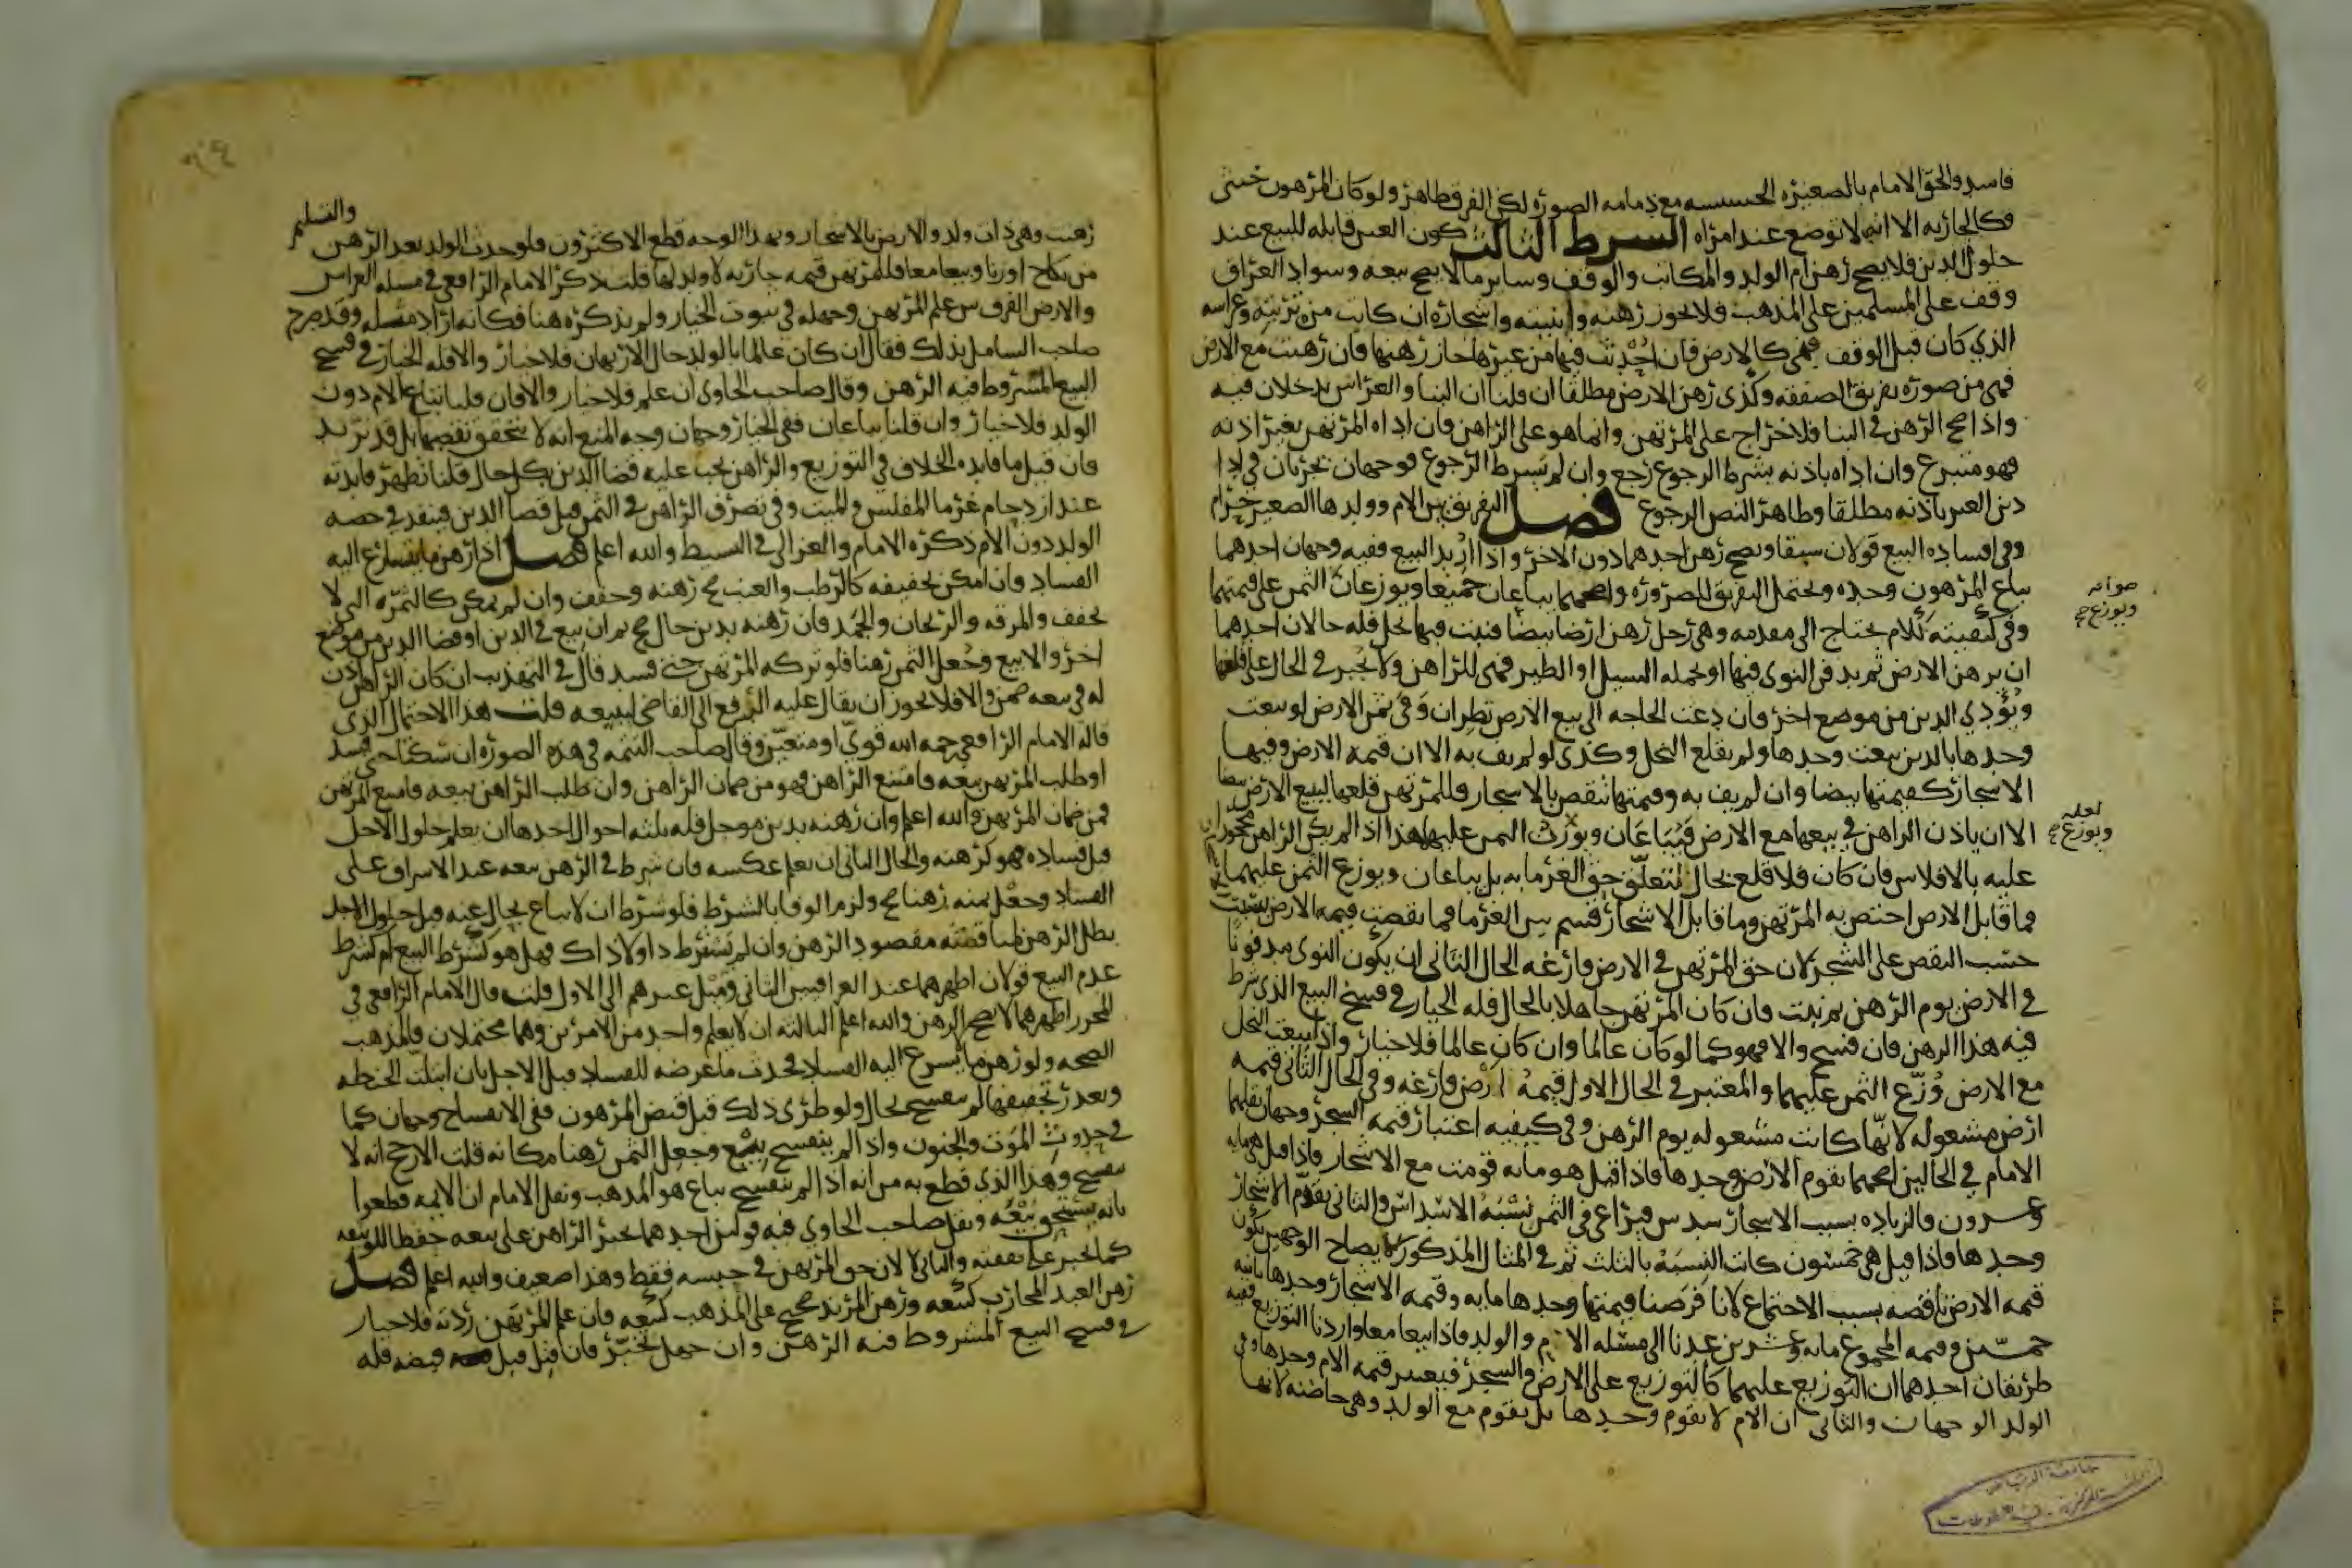 فاسد والحق الامام بالصغيره الخسيسه مع دمامه الصوره لكن الفرق ظاهر ولو كان المرهون خنثى
فكالجاريه الا انه لا توضع عند امراه الشرط الثالث كون العين قابله للبيع عند
حلول الدين فلا يصح رهن ام الولد والمكاتب والوقف وساير ما لا يصح بيعه وسواد العراق
وقف على المسلمين على المذهب فلا يجوز رهنه وابنيته واشجاره ان كانت من تربته وغراسه
الذي كان قبل الوقف فهي كالارض فان احدثت فيها من غيرها جاز رهنها فان رهنت مع الارض
فهي من صوره تفريق الصفقه وكذى رهن الارض مطلقا ان قلنا ان البنا والغراس يدخلان فيه
واذا صح الرهن في البنا فلا خراج على المرتهن وانما هو على الراهن فان اداه المرتهن بغير اذنه
فهو متبرع وان اداه باذنه بشرط الرجوع رجع وان لم يشرط الرجوع فوجهان يجريان في ادا
دين الغير باذنه مطلقا وظاهر النص الرجوع فصل التفريق بين الام وولدها الصغير حرام
وفي افساده البيع قولان سبقا ويصح رهن احدهما دون الاخر واذا اريد البيع ففيه وجهان احدهما
يباع المرهون وحده ويحتمل التفريق للضروره واصحهما يباعان جميعا ويوزعان الثمن على قيمتهما
وفي كيفيته كلام يحتاج الى مقدمه وهي رجل رهن ارضا بيضا فنبت فيها نخل فله حالان احدهما
ان يرهن الارض ثم يدفن النوى فيها او يحمله السيل او الطير فهي للراهن ولا يجبر في الحال على قلعها
ويؤدي الدين من موضع اخر فان دعت الحاجه الى بيع الارض نظران وفى ثمن الارض لو بيعت
وحدها بالدين بيعت وحدها ولم يقلع النخل وكذى لو لم يف به الا ان قيمه الارض وفيها
الاشجار كقيمتها بيضا وان لم يف به وقيمتها تنقص بالاشجار فللمرتهن قلعها لبيع الارض بيضا
الا ان ياذن الراهن في بيعها مع الارض فيباعان ويوزن الثمن عليها هذا اذا لم يكن الراهن محجورا
عليه بالافلاس فان كان فلا قلع بحال لتعلق حق الغرما به بل يباعان ويوزع الثمن عليهما
فما قابل الارض اختص به المرتهن وما قابل الاشجار قسم بين الغرما فما نقصت قيمه الارض بسبب
حسب النقص على الشجر لان حق المرتهن في الارض فارغه الحال الثاني ان يكون النوى مدفونا
في الارض يوم الرهن ثم نبت فان كان المرتهن جاهلا بالحال فله الخيار في فسخ البيع الذي شرط
فيه هذا الرهن فان فسخ والا فهو كما لو كان عالما وان كان عالما فلا خيار واذا بيعت النخل
مع الارض وزع الثمن عليهما والمعتبر في الحال الاول قيمه ارض فارغه وفي الحال الثاني قيمه
ارض مشغوله لانها كانت مشغوله يوم الرهن وفي كيفيه اعتبار قيمه الشجر وجهان نقلهما
الامام في الحالين اصحهما تقوم الارض وحدها فاذا قيل هو مايه قومت مع الاشجار فاذا قيل هي مايه
وعشرون فالزياده بسبب الاشجار سدس فيراعى في الثمن نسبه الاسداس والثاني تقوم الاشجار
وحدها فاذا قيل هي خمسون كانت النسبه بالثلث ثم في المثال المذكور لايضاح الوجهين تكون
قيمه الارض ناقصه بسبب الاجتماع لانا فرضنا قيمتها وحدها مايه وقيمه الاشجار وحدها ثانيه
خمسين وقيمه المجموع مايه وعشرين عدنا الى مسئله الام والولد فاذا بيعا معا واردنا التوزيع ففيه
طريقان احدهما ان التوزيع عليهما كالتوزيع على الارض والشجر فيعتبر قيمه الام وحدها وفي
الولد الوجهان والثاني ان الام لا تقوم وحدها بل يقوم مع الولد وهي حاضنه لانها
صوابه
ويوزع صح
لعله
ويوزع صح
والتسليم
رهنت وهي ذات ولد والارض بالاشجار وبهذا الوجه قطع الاكثرون فلو حدث الولد بعد الرهن
من نكاح او زنا وبيعا معا فللمرتهن قيمه جاريه لا ولد لها قلت ذكر الامام الرافعي في مسله الغراس
والارض الفرق بين علم المرتهن وجهله في ثبوت الخيار ولم يذكره هنا فكانه اراد مثله وقد صرح
صاحب الشامل بذلك فقال ان كان عالما بالولد حال الارتهان فلا خيار والا فله الخيار في فسخ
البيع المشروط فيه الرهن وقال صاحب الحاوي ان علم فلا خيار والا فان قلنا تباع الام دون
الولد فلا خيار وان قلنا يباعان ففي الخيار وجهان وجه المنع انه لا يتحقق نقصها بل قد تزيد
فان قيل ما فايده الخلاف في التوزيع والراهن يجب عليه قضا الدين بكل حال قلنا تظهر فايدته
عند ازدحام غرما المفلس والميت وفي تصرف الراهن في الثمن قبل قضا الدين فينفذ في حصه
الولد دون الام ذكره الامام والغزالي في البسيط والله اعلم فصل اذا رهن ما يتسارع اليه
الفساد فان امكن تجفيفه كالرطب والعنب صح رهنه وجفف وان لم يمكن كالثمره التي لا
تجفف والمرقه والريحان والجمد فان رهنه بدين حال صح ثم ان بيع في الدين او قضا الدين من موضع
اخر والا بيع وجعل الثمن رهنا فلو تركه المرتهن حتى فسد قال في التهذيب ان كان الراهن اذن
له في بيعه ضمن والا فلا يجوز ان يقال عليه الرفع الى القاضي لبيعه قلت هذا الاحتمال الذي
قاله الامام الرافعي رحمه الله قوي او متعين وقال صاحب التتمه في هذه الصوره ان سكتا حتى فسد
او طلب المرتهن بيعه فامتنع الراهن فهو من ضمان الراهن وان طلب الراهن بيعه فامتنع المرتهن
فمن ضمان المرتهن والله اعلم وان رهنه بدين موجل فله ثلثه احوال احدها ان يعلم حلول الاجل
قبل فساده فهو كرهنه والحال الثاني ان يعلم عكسه فان شرط في الرهن بيعه عند الاشراف على
الفساد وجعل ثمنه رهنا صح ولزم الوفا بالشرط فلو شرط ان لا يباع بحال عنه قبل حلول الاجل
بطل الرهن لمناقضته مقصود الرهن وان لم يشترط ذا ولا ذاك فهل هو كشرط البيع ام كشرط
عدم البيع قولان اظهرهما عند العراقيين الثاني وميل غيرهم الى الاول قلت قال الامام الرافعي في
المحرر اظهرهما لا يصح الرهن والله اعلم الثالثه ان لا يعلم واحد من الامرين وهما محتملان فالمذهب
الصحه ولو رهن ما يسرع اليه الفساد فحدث ما عرضه للفساد قبل الاجل بان ابتلت الحنطه
وتعذر تجفيفها لم ينفسخ بحال ولو طرى ذلك قبل قبض المرهون ففي الانفساخ وجهان كما
في حدوث الموت والجنون واذا لم ينفسخ بيع وجعل الثمن رهنا مكانه قلت الارجح انه لا
ينفسخ وهذا الذي قطع به من انه اذا لم ينفسخ يباع هو المذهب ونقل الامام ان الايمه قطعوا
بانه يستحق بيعه ونقل صاحب الحاوي فيه قولين احدهما يجبر الراهن على بيعه حفظا للوثيقه
كما يجبر على نفقته والثاني لا لان حق المرتهن في حبسه فقط وهذا ضعيف والله اعلم فصل
رهن العبد المحارب كبيعه ورهن المرتد صحيح على المذهب كبيعه فان علم المرتهن ردته فلا خيار
في فسخ البيع المشروط فيه الرهن وان جهل تخير فان قتل قبل قبضه فله